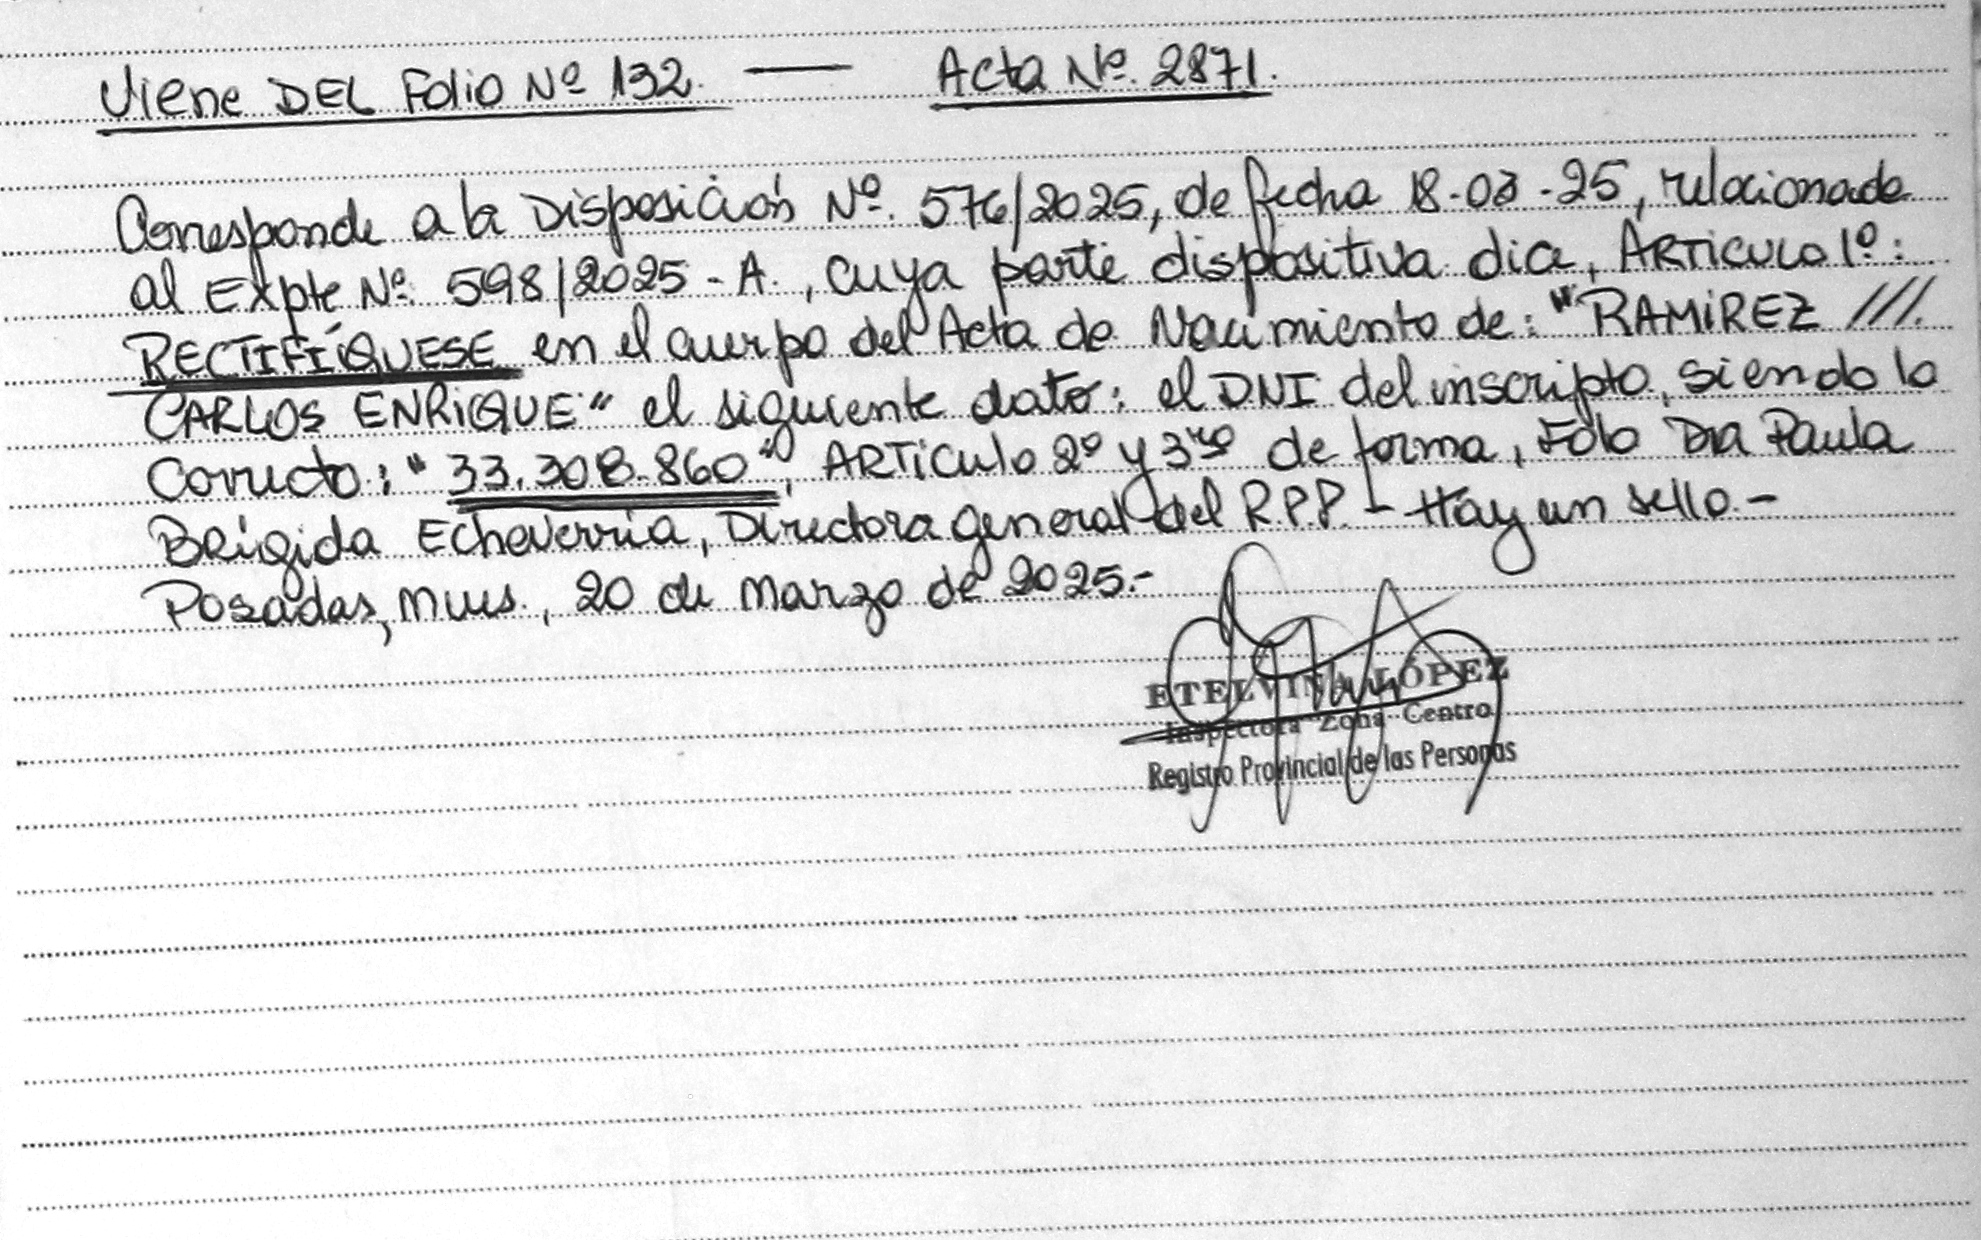 Viene DEL Folio Nº 132. — Acta Nº. 2871.
Corresponde a la Disposición Nº. 576/2025, de fecha 18-03-25, relacionada
al Expte Nº. 598/2025-A., cuya parte dispositiva dice, ARTICULO 1º:
RECTIFÍQUESE en el cuerpo del Acta de Nacimiento de: "RAMIREZ ///.
CARLOS ENRIQUE" el siguiente dato: el DNI del inscripto, siendo lo
Correcto: "33.308.860", ARTiCulo 2º y 3ro de forma, Fdo Dra Paula
Brígida Echeverría, Directora general del R.P.P. - Hay un sello.-
Posadas, Mnes., 20 de Marzo de 2025.-
ETELVINA LÓPEZ
Inspectora Zona Centro
Registro Provincial de las Personas